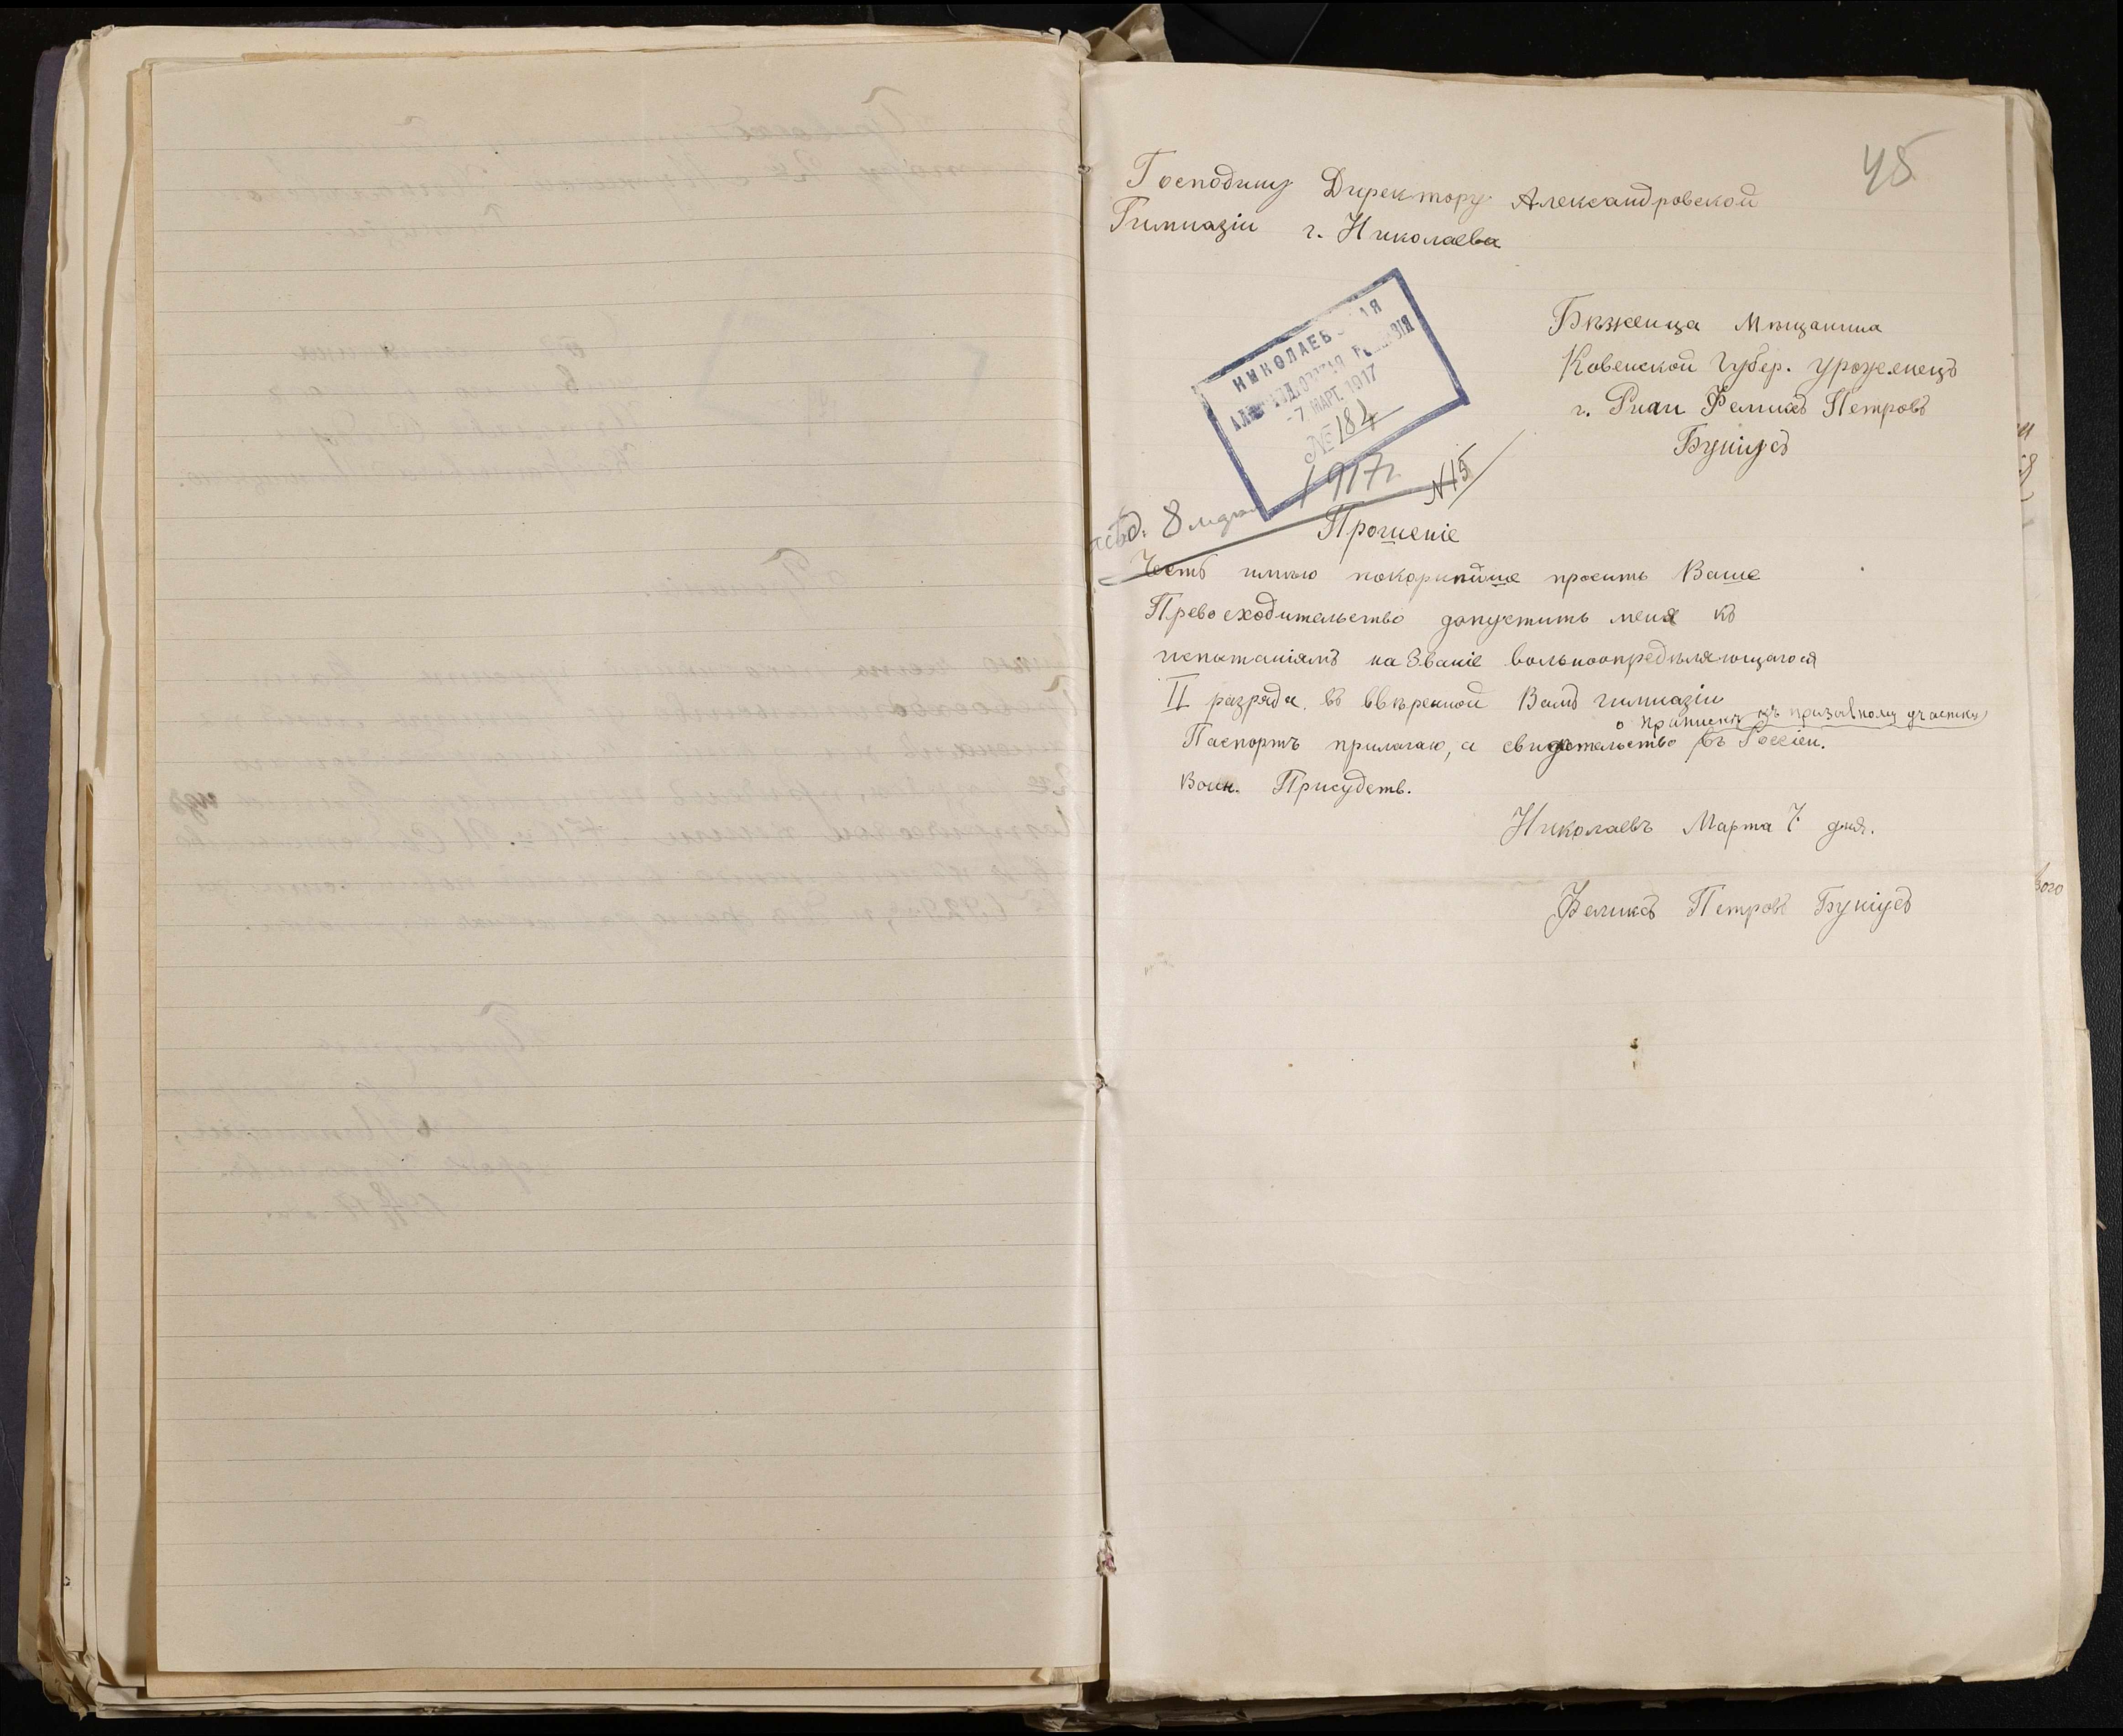 45
Господину Директору Александровской
Гимназіи г. Николаева
Бѣженца Мѣщанина
Ковенской Губер. урожѣнецъ
г. Риги Феликсъ Петровъ
Буніусъ
НИКОЛАЕВСКАЯ
АЛЕКСАНДРОВСКАЯ ГИМНАЗІЯ
-7 МАРТ. 1917
№ 184
1917 г. N 15
8
Прошеніе
Честь имѣю покорнѣйше просить Ваше
Превосходительство допустить меня къ
испытаніямъ на Званіе вольноопредѣляющагося
II разряда въ ввѣренной Вамъ гимназіи
о припискѣ къ призывному участку
Паспортъ прилагаю, а свидѣтельство въ Россіен.
Воин. Присудств.
Николаевъ Марта 7 дня.
Феликсъ Петровъ Буніусъ